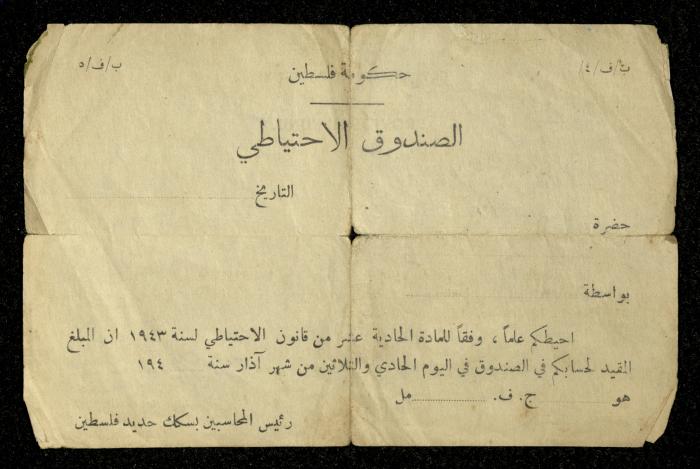 ب/ف/٤/
ب/ف/٥
حكومة فلسطين
الصندوق الاحتياطي
التاريخ
حضرة
بواسطة
احيطكم عاماً، وفقاً للمادة الحادية عشر من قانون الاحتياطي لسنة ١٩٤٣ ان المبلغ
المقيد لحسابكم في الصندوق في اليوم الحادي والثلاثين من شهر آذار سنة ١٩٤
هو ج. ف. مل
رئيس المحاسبين بسكك حديد فلسطين